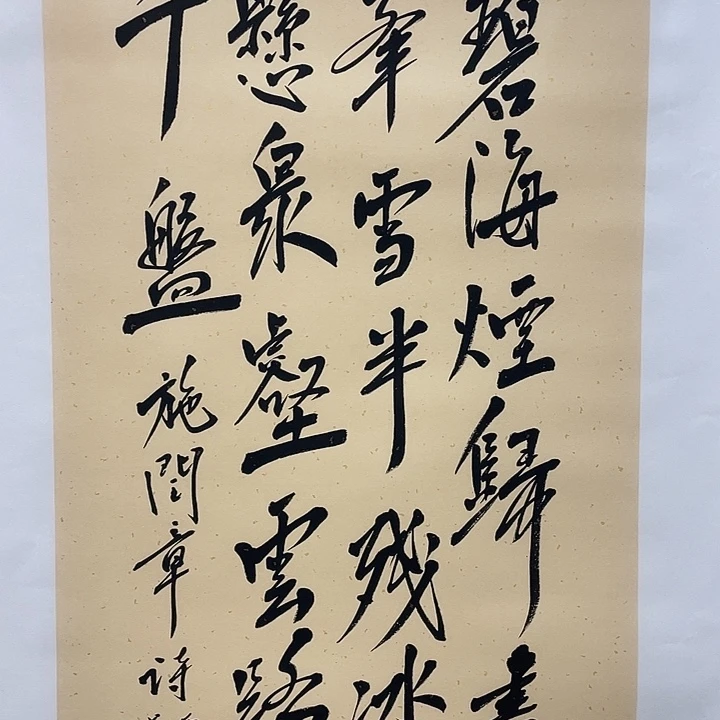 碧海煙歸盡
峯雪半残冰
懸衆壑雲路
千盤 施閏章詩